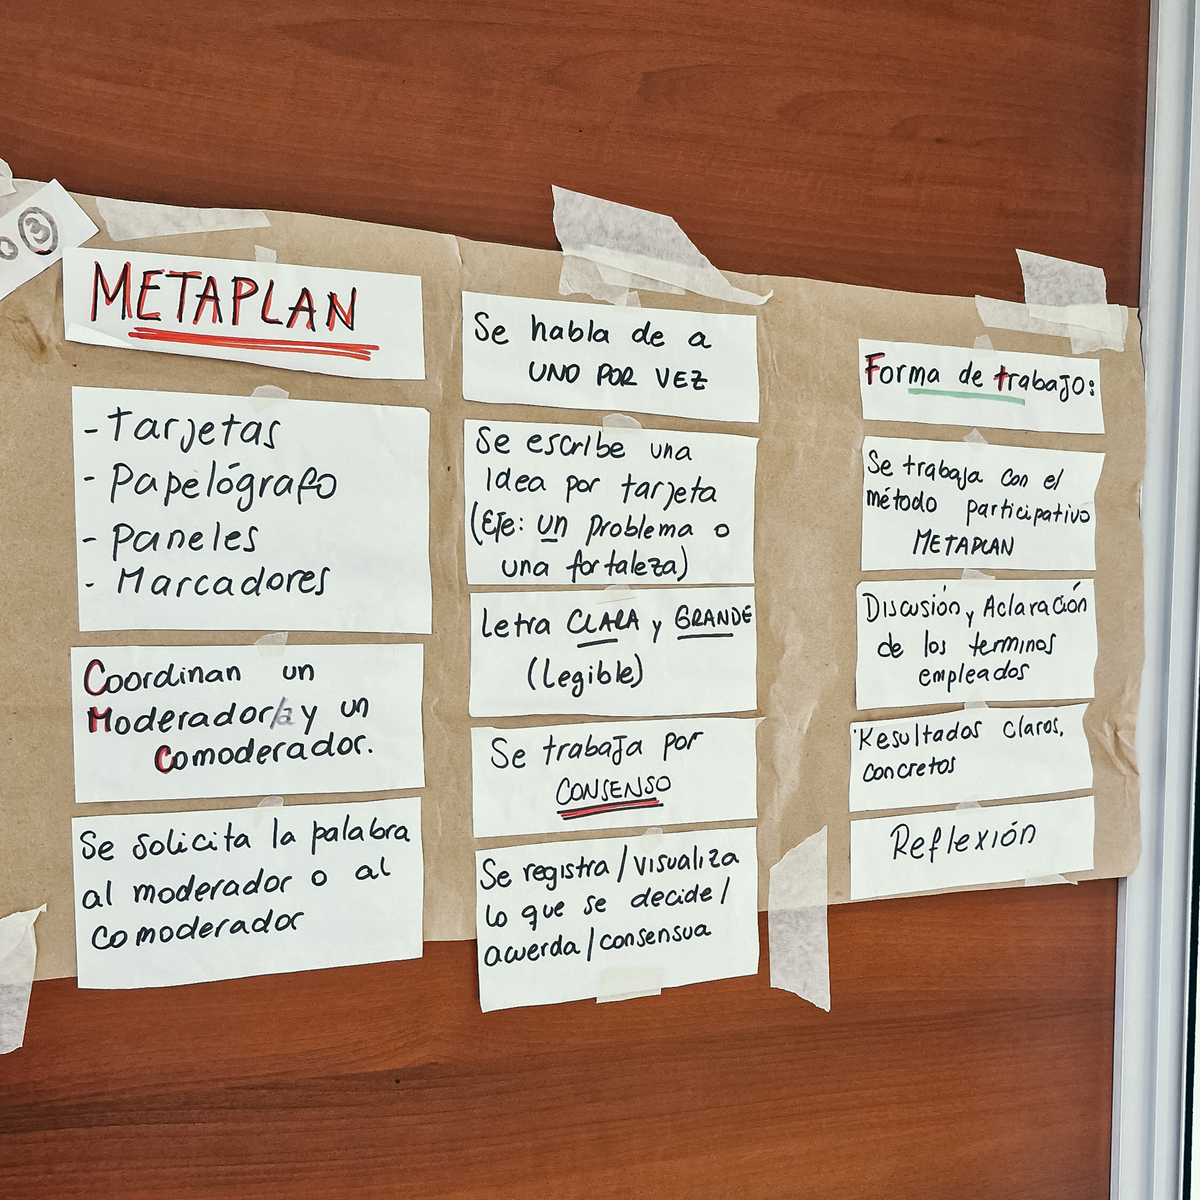 3
METAPLAN
- Tarjetas
- Papelógrafo
- Paneles
- Marcadores
Coordinan un
Moderador/a y un
Comoderador.
Se solicita la palabra
al moderador o al
comoderador
Se habla de a
UNO POR VEZ
Se escribe una
idea por tarjeta
(Eje: un problema o
una fortaleza)
Letra CLARA y GRANDE
(Legible)
Se trabaja por
CONSENSO
Se registra / visualiza
lo que se decide /
acuerda / consensua
Forma de trabajo:
Se trabaja con el
método participativo
METAPLAN
Discusión y Aclaración
de los terminos
empleados
Resultados claros,
concretos
Reflexión